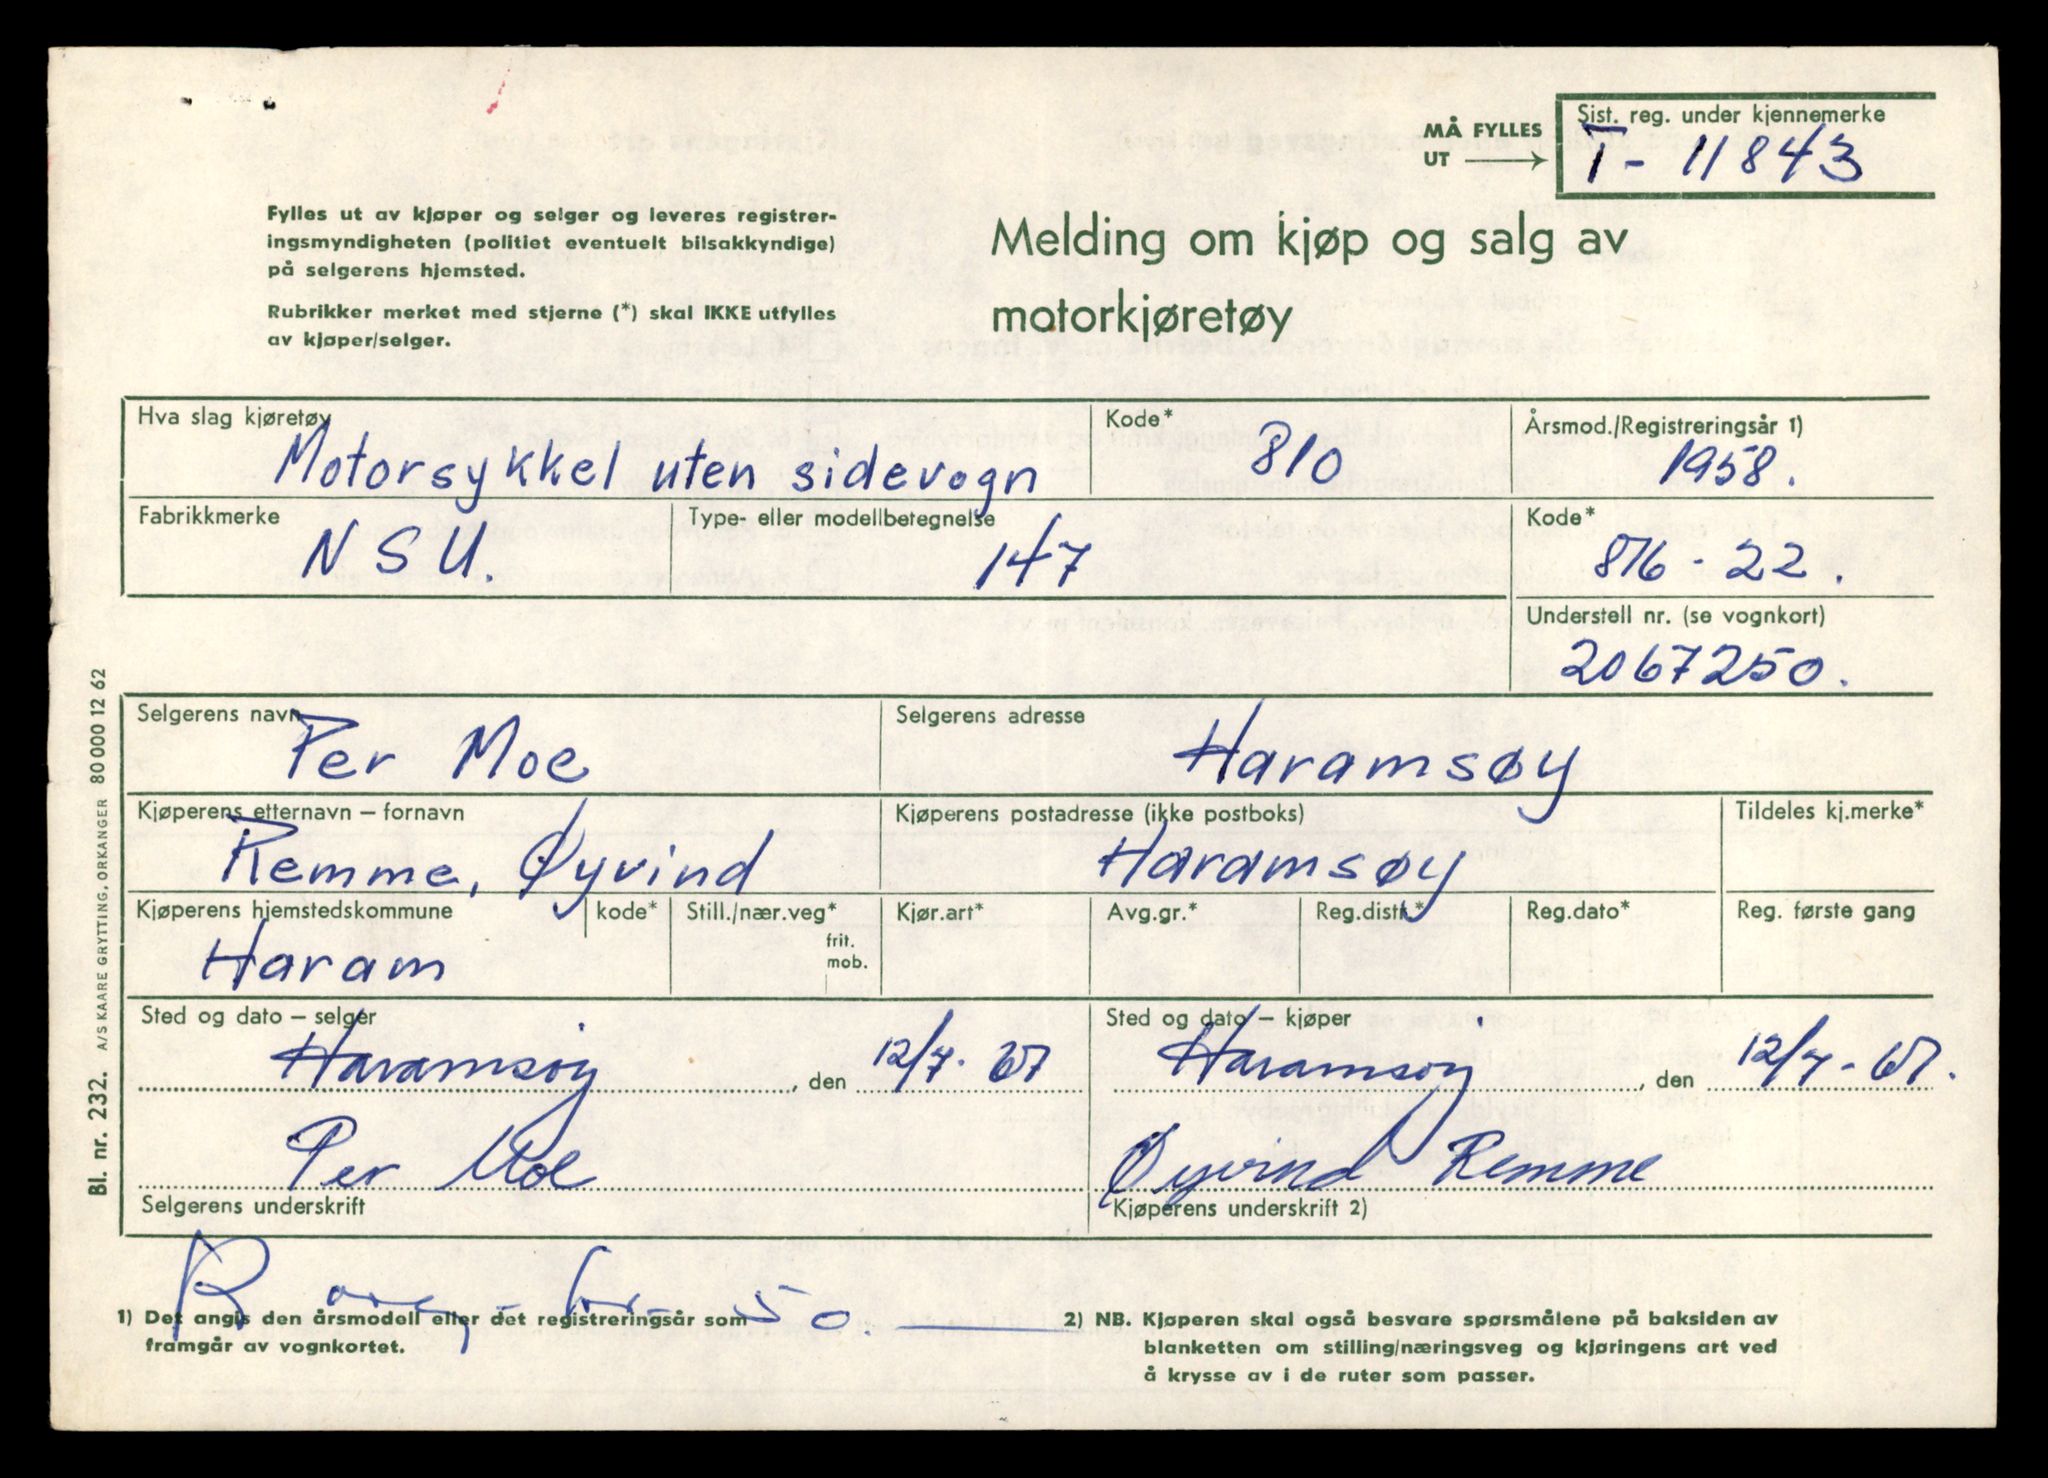 MÅ FYLLES
UT
Sist. reg. under kjennemerke
T - 11843
Fylles ut av kjøper og selger og leveres registrer-
ingsmyndigheten (politiet eventuelt bilsakkyndige)
på selgerens hjemsted.
Rubrikker merket med stjerne (*) skal IKKE utfylles
av kjøper/selger.
Melding om kjøp og salg av
motorkjøretøy
Hva slag kjøretøy
Motorsykkel uten sidevogn
Kode*
810
Årsmod./Registreringsår 1)
1958.
Fabrikkmerke
NSU.
Type- eller modellbetegnelse
147
Kode*
876 - 22.
Understell nr. (se vognkort)
2067250.
Selgerens navn
Per Moe
Selgerens adresse
Haramsøy
Kjøperens etternavn – fornavn
Remme, Øyvind
Kjøperens postadresse (ikke postboks)
Haramsøy
Tildeles kj.merke*
Kjøperens hjemstedskommune
Haram
kode*
Still./nær.veg*
frit.
mob.
Kjør.art*
Avg.gr.*
Reg.distr.*
Reg.dato*
Reg. første gang
Sted og dato – selger
Haramsøy, den 12/7. 67
Sted og dato – kjøper
Haramsøy, den 12/7 - 67.
Per Moe
Selgerens underskrift
Øyvind Remme
Kjøperens underskrift 2)
50.
1) Det angis den årsmodell eller det registreringsår som
framgår av vognkortet.
2) NB. Kjøperen skal også besvare spørsmålene på baksiden av
blanketten om stilling/næringsveg og kjøringens art ved
å krysse av i de ruter som passer.
Bl. nr. 232. A/S KAARE GRYTTING, ORKANGER 80 000 12 62